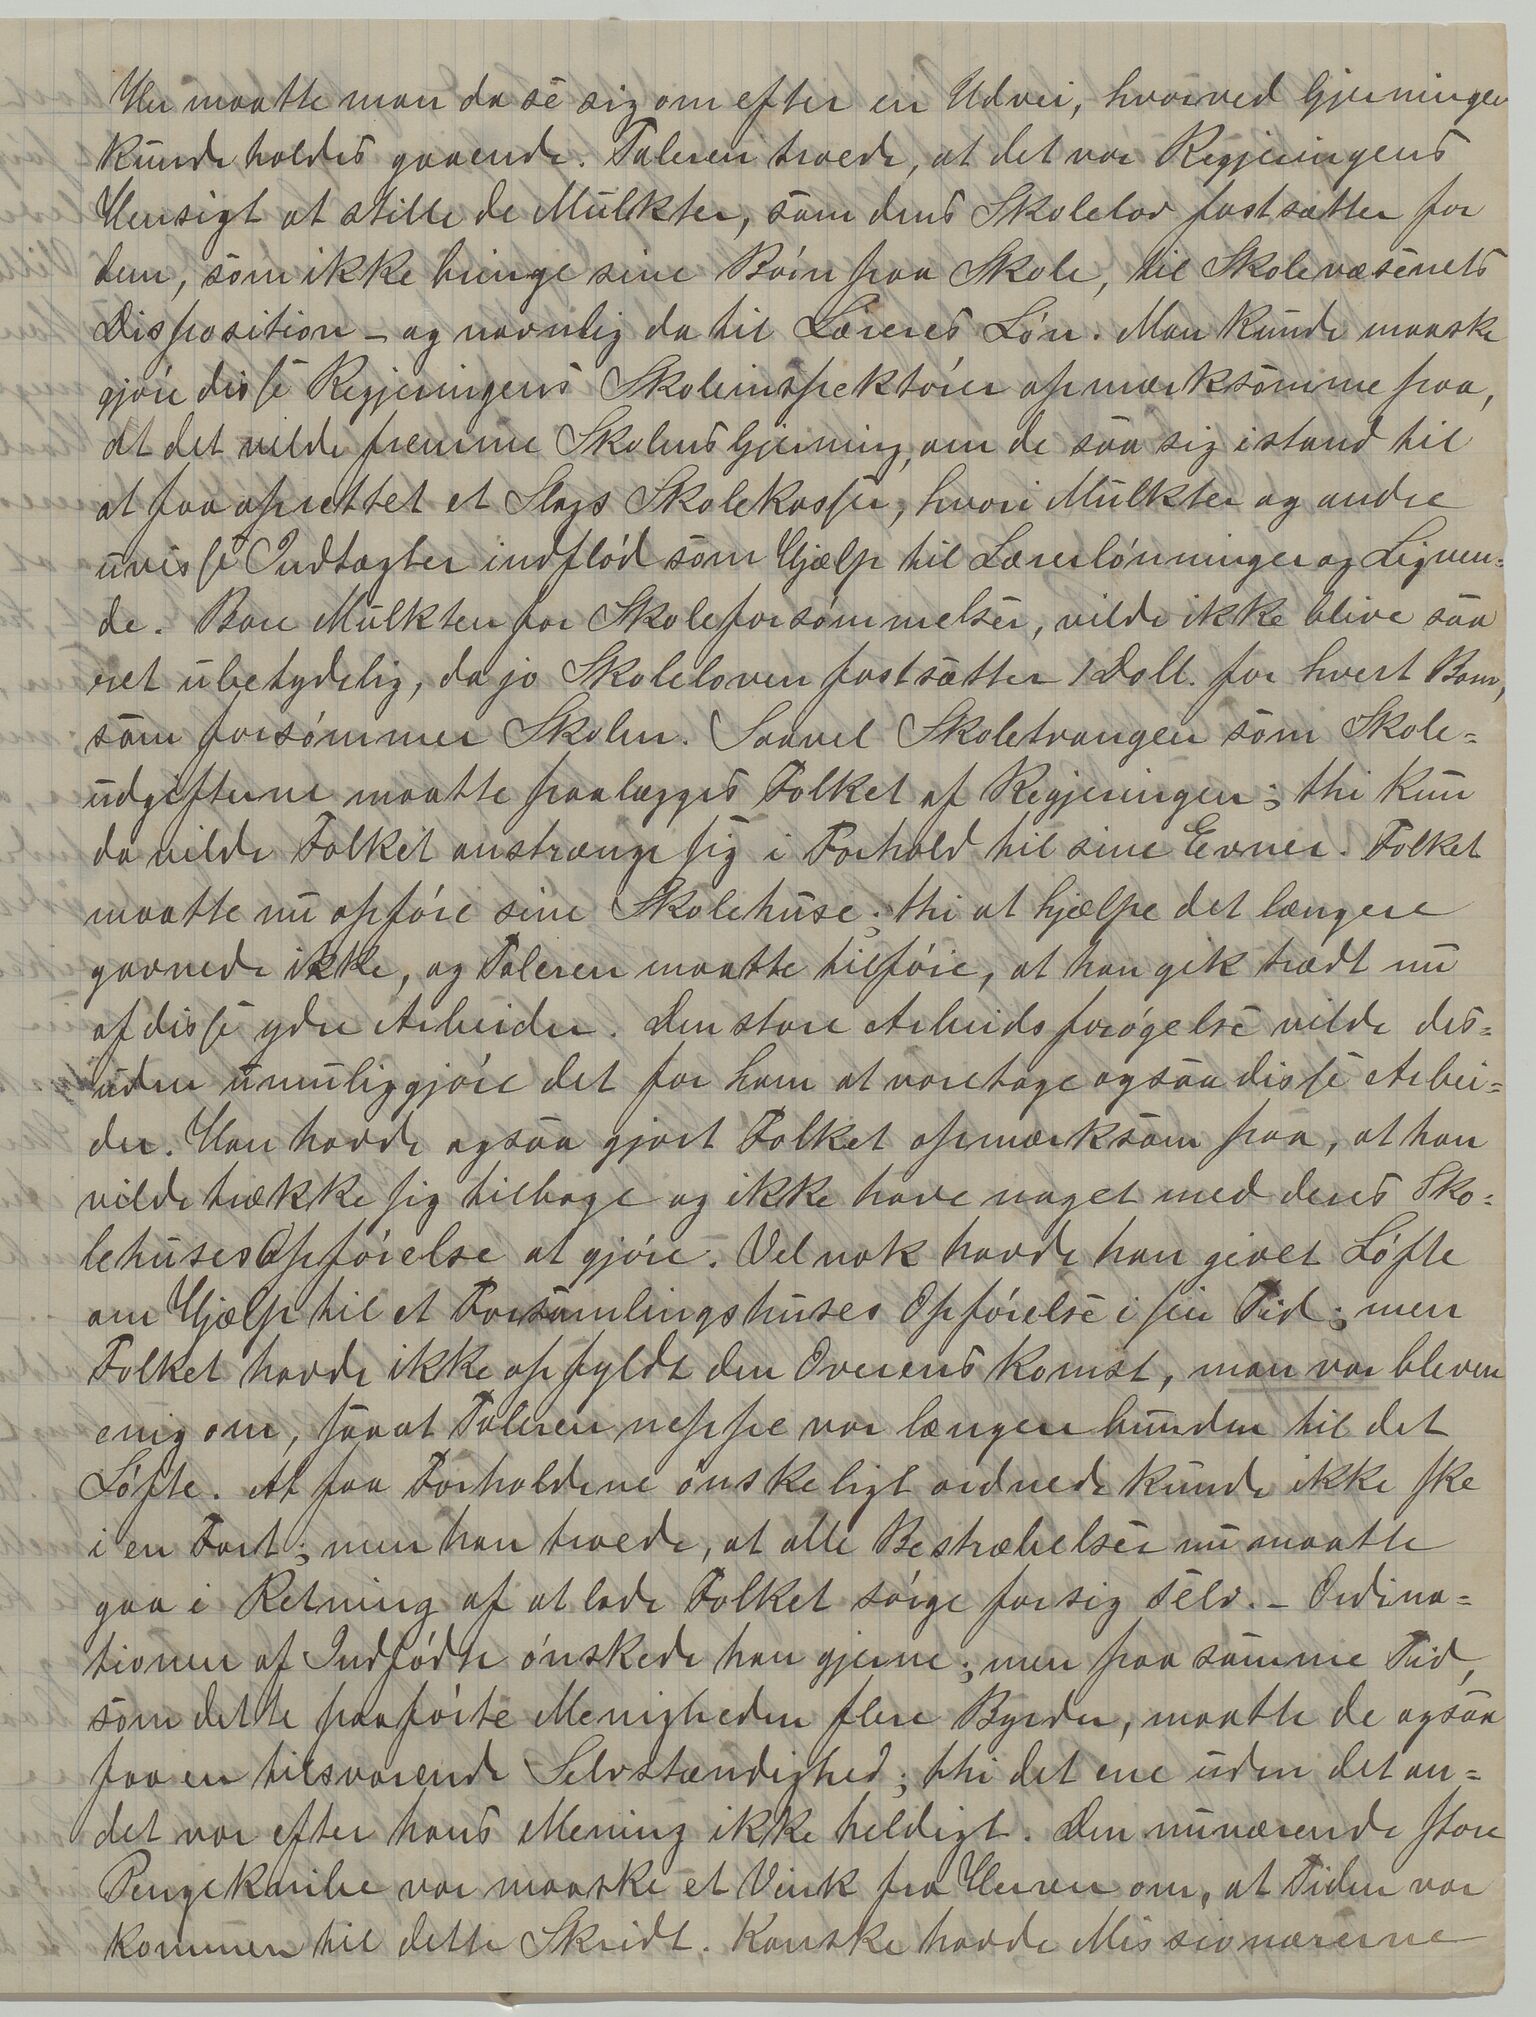 Her maatte man da se sig om efter en Udvei, hvorved Gjerningen
kunde holdes gaaende. Taleren troede, at det var Regjeringens
Hensigt at stille de Mulkter, som dens Skolelov fastsætter for
dem, som ikke bringe sine Børn paa Skole, til Skolevæsenets
Disposition – og navnlig da til Læreres Løn. Man kunde maaske
gjøre disse Regjeringens Skoleinspektører opmærksomme paa,
at det vilde fremme Skolens Gjerning, om de saa sig istand til
at faa oprettet et Slags Skolekasser, hvori Mulkter og andre
uvisse Indtægter indflød som Hjælp til Lærerlønninger og Lignen=
de. Bare Mulkten for Skoleforsømmelser, vilde ikke blive saa
ret ubetydelig, da jo Skoleloven fastsætter 1 Doll. for hvert Barn,
som forsømmer Skolen. Saavel Skoletvangen som Skole=
udgifterne maatte paalægges Folket af Regjeringen; thi kun
da vilde Folket anstrænge sig i Forhold til sine Evner. Folket
maatte nu opføre sine Skolehuse; thi at hjælpe det længere
gavnede ikke, og Taleren maatte tilføie, at han gik trædt nu
af disse ydre Arbeider. Den store Arbeidsforøgelse vilde des=
uden umuliggjøre det for ham at varetage ogsaa disse Arbei=
der. Han havde ogsaa gjort Folket opmærksom paa, at han
vilde trække sig tilbage og ikke have noget med deres Sko=
lehuses Opførelse at gjøre. Vel nok havde han givet Løfte
om Hjælp til et Forsamlingshuses Opførelse i sin Tid; men
Folket havde ikke opfyldt den Overenskomst, man var bleven
enig om, saa at Taleren neppe var længer bunden til det
Løfte. At faa Forholdene ønskeligt ordnede kunde ikke ske
i en Fart; men han troede, at alle Bestræbelser nu maatte
gaa i Retning af at lade Folket sørge for sig selv. – Ordina=
tionen af Indfødte ønskede han gjerne; men paa samme Tid,
som dette paaførte Menigheden flere Byrder, maatte de ogsaa
faa en tilsvarende Selvstændighed; thi det ene uden det an=
det var efter hans Mening ikke heldigt. Den nuværende store
Pengeknibe var maaske et Vink fra Herren om, at Tiden var
kommen til dette Skridt. Kanske havde Missionærerne